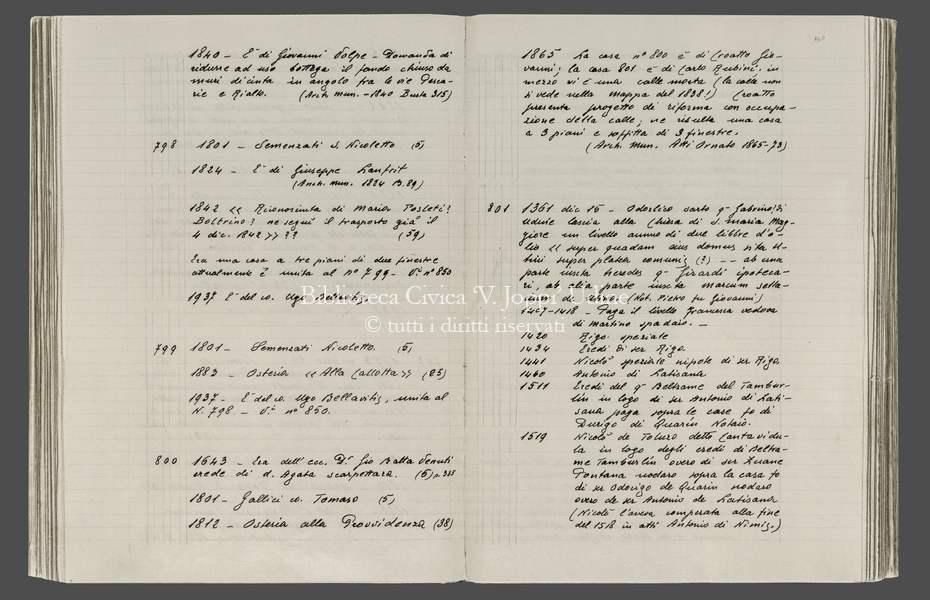 1840 – È di Giovanni Volpe – Domanda di
ridurre ad uso bottega il fondo chiuso da
muri di cinta in angolo tra le vie Pesca-
rie e Rialto. (Arch. mun. – 1840 Busta 315)
798 1801 – Semenzati S. Nicoletto (5)
1824 – È di Giuseppe Lanfrit
(Arch. mun. 1824 B. 89)
1842 << Riconosciuta di Maria Posleti?
Boltrino? ne seguì il trasporto già il
4 dic. 1842 >> ?? (59)
Era una casa a tre piani di due finestre
attualmente è unita al n° 799 – V. n° 850
1937 È del co. Ugo
Biblioteca Civica 'V. Joppi' Udine
© tutti i diritti riservati
799 1801 – Semenzati Nicoletto. (5)
1883 – Osteria << Alla Callotta >> (25)
1937 – È del co. Ugo Bellavitis, unita al
N. 798 – V. n° 850.
800 1643 – Era dell'ecc. D. Gio Batta Venuti
erede di d. Agata scarpettara. (6) p. 335
1801 – Gallici co. Tomaso (5)
1812 – Osteria alla Provvidenza (38)
1865 La casa n° 800 è di Croatto Gio-
vanni; la casa 801 è di Carlo Rubini. in
mezzo vi è una calle morta (la calle non
si vede nella mappa del 1838!) Croatto
presenta progetto di riforma con occupa-
zione della calle; ne risulta una casa
a 3 piani e soffitta di 3 finestre.
(Arch. mun. Atti Ornato 1865-73)
801 1361 dic 15 – Odorlico sarto q. Gabrino di
Udine lascia alla Chiesa di S. Maria Mag-
giore un livello annuo di due libbre d'o-
lio << super quadam eius domus sita U-
tini super platea comunis (?) -- ab una
parte iuxta heredes q. Girardi ipoteca-
ri, ab alia parte iuxta marcum sella-
rium di (Not. Pietro fu Giovanni)
1417-1418 – Paga il livello Francesca vedova
di Martino spadaio. –
1420 Rigo speziale
1434 Eredi di ser Rigo.
1441 Nicolò speziale nipote di ser Rigo.
1460 Antonio di Latisana
1511 Eredi del q. Beltrame del Tambur-
lin in logo di ser Antonio di Lati-
sana paga sopra le case fo di
Durigo di Quarin Notaio.
1519 Nicolò de Toluso detto Cantavidu-
la in logo degli eredi di Beltra-
me Tamburlin overo di ser Zuane
Fontana nodaro sopra la casa fo
di ser Odorigo de Quarin nodaro
overo de ser Antonio de Latisana
(Nicolò l'aveva comperata alla fine
del 1518 in atti Antonio di Nimis.)